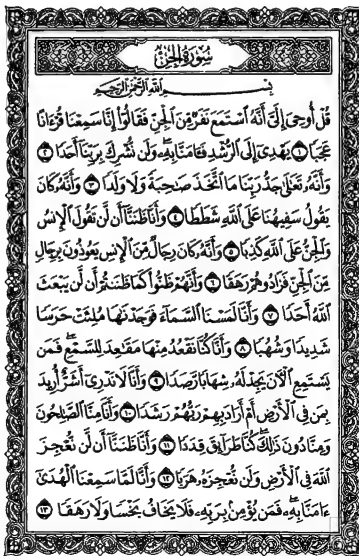 سُورَةُ الْجِنِّ
بِسْمِ اللَّهِ الرَّحْمَٰنِ الرَّحِيمِ
قُلْ أُوحِىَ إِلَىَّ أَنَّهُ اسْتَمَعَ نَفَرٌ مِّنَ الْجِنِّ فَقَالُوٓا إِنَّا سَمِعْنَا قُرْءَانًا
عَجَبًا ١ يَهْدِىٓ إِلَى الرُّشْدِ فَـَٔامَنَّا بِهِۦ وَلَن نُّشْرِكَ بِرَبِّنَآ أَحَدًا ٢
وَأَنَّهُۥ تَعَٰلَىٰ جَدُّ رَبِّنَا مَا اتَّخَذَ صَٰحِبَةً وَلَا وَلَدًا ٣ وَأَنَّهُۥ كَانَ
يَقُولُ سَفِيهُنَا عَلَى اللَّهِ شَطَطًا ٤ وَأَنَّا ظَنَنَّآ أَن لَّن تَقُولَ الْإِنسُ
وَالْجِنُّ عَلَى اللَّهِ كَذِبًا ٥ وَأَنَّهُۥ كَانَ رِجَالٌ مِّنَ الْإِنسِ يَعُوذُونَ بِرِجَالٍ
مِّنَ الْجِنِّ فَزَادُوهُمْ رَهَقًا ٦ وَأَنَّهُمْ ظَنُّوا كَمَا ظَنَنتُمْ أَن لَّن يَبْعَثَ
اللَّهُ أَحَدًا ٧ وَأَنَّا لَمَسْنَا السَّمَآءَ فَوَجَدْنَٰهَا مُلِئَتْ حَرَسًا
شَدِيدًا وَشُهُبًا ٨ وَأَنَّا كُنَّا نَقْعُدُ مِنْهَا مَقَٰعِدَ لِلسَّمْعِ فَمَن
يَسْتَمِعِ الْءَانَ يَجِدْ لَهُۥ شِهَابًا رَّصَدًا ٩ وَأَنَّا لَا نَدْرِىٓ أَشَرٌّ أُرِيدَ
بِمَن فِى الْأَرْضِ أَمْ أَرَادَ بِهِمْ رَبُّهُمْ رَشَدًا ١٠ وَأَنَّا مِنَّا الصَّٰلِحُونَ
وَمِنَّا دُونَ ذَٰلِكَ كُنَّا طَرَآئِقَ قِدَدًا ١١ وَأَنَّا ظَنَنَّآ أَن لَّن نُّعْجِزَ
اللَّهَ فِى الْأَرْضِ وَلَن نُّعْجِزَهُۥ هَرَبًا ١٢ وَأَنَّا لَمَّا سَمِعْنَا الْهُدَىٰٓ
ءَامَنَّا بِهِۦ فَمَن يُؤْمِنۢ بِرَبِّهِۦ فَلَا يَخَافُ بَخْسًا وَلَا رَهَقًا ١٣